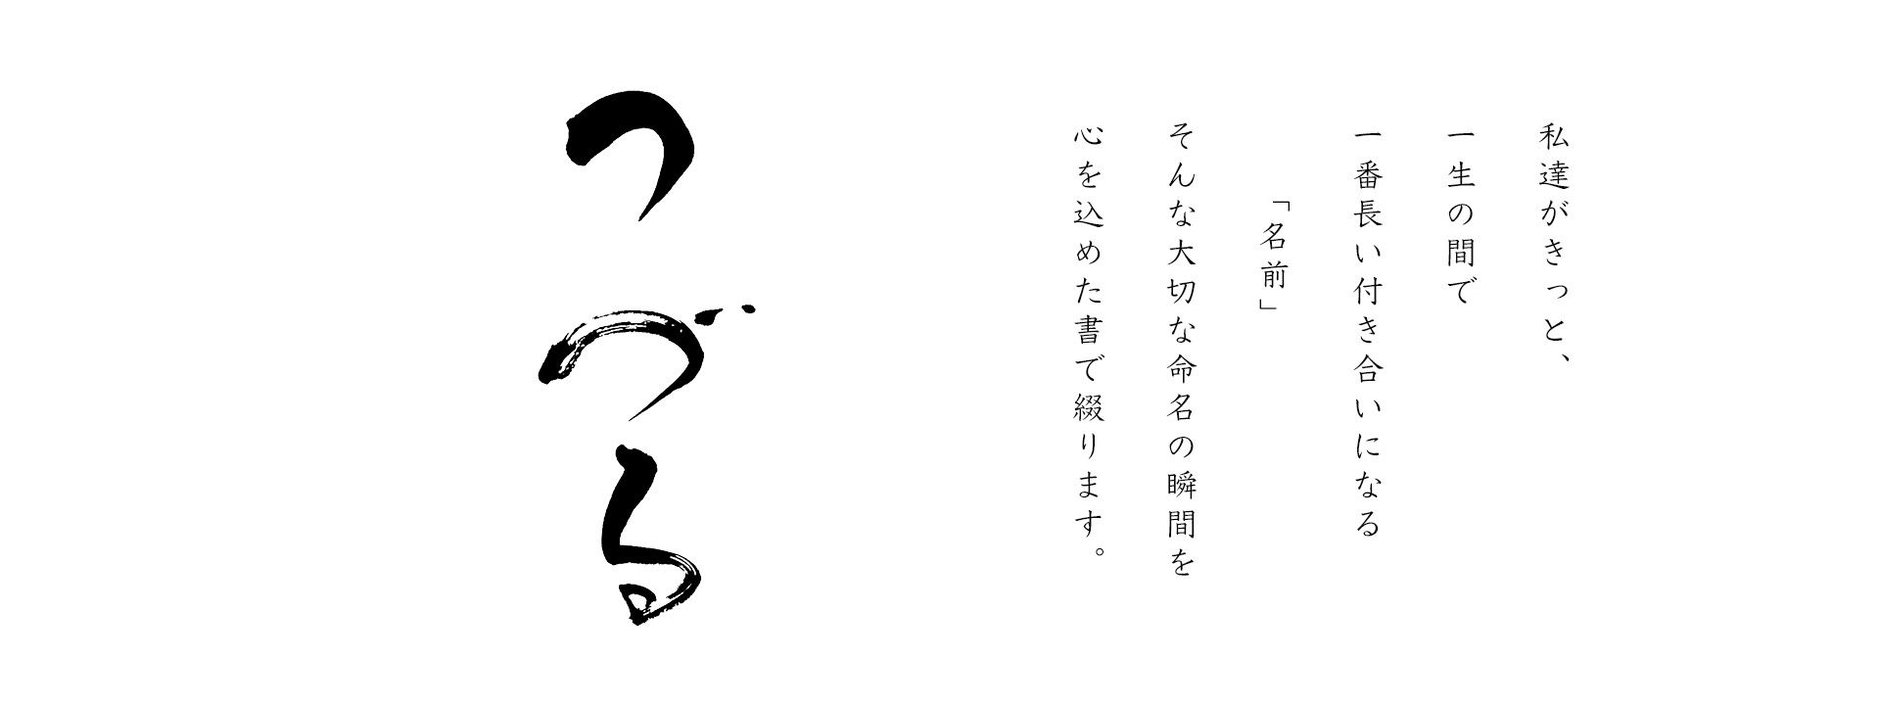 私達がきっと、
一生の間で
一番長い付き合いになる
「名前」
そんな大切な命名の瞬間を
心を込めた書で綴ります。
つづる